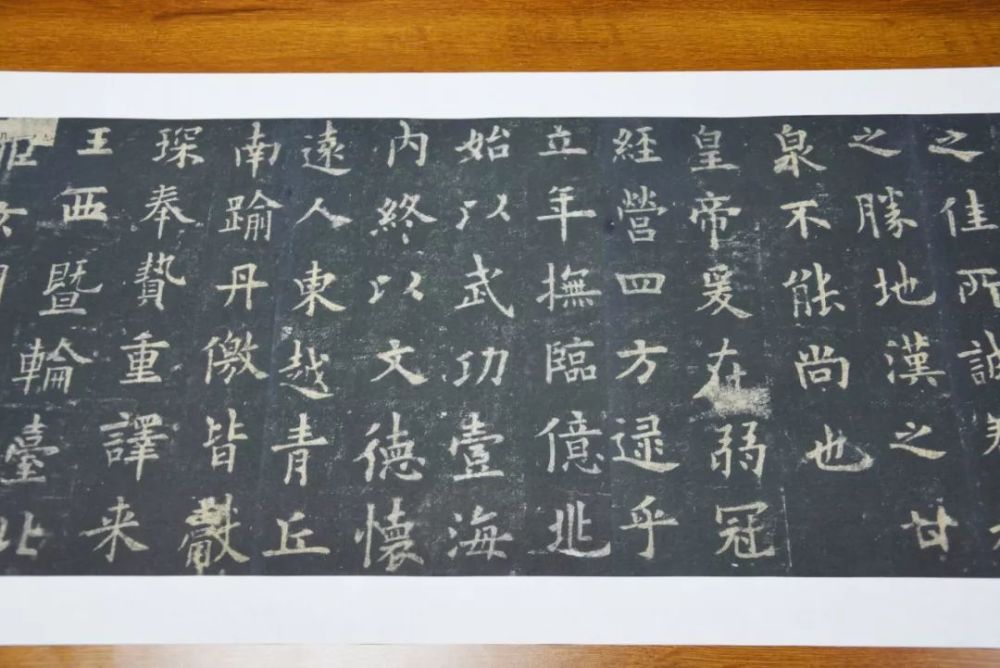 之佳所誠
之勝地漢之甘
泉不能尚也
皇帝爰在弱冠
經營四方逮乎
立年撫臨億兆
始以武功壹海
內終以文德懷
遠人東越青丘
南踰丹儌皆獻
琛奉贄重譯来
王西暨輪臺北